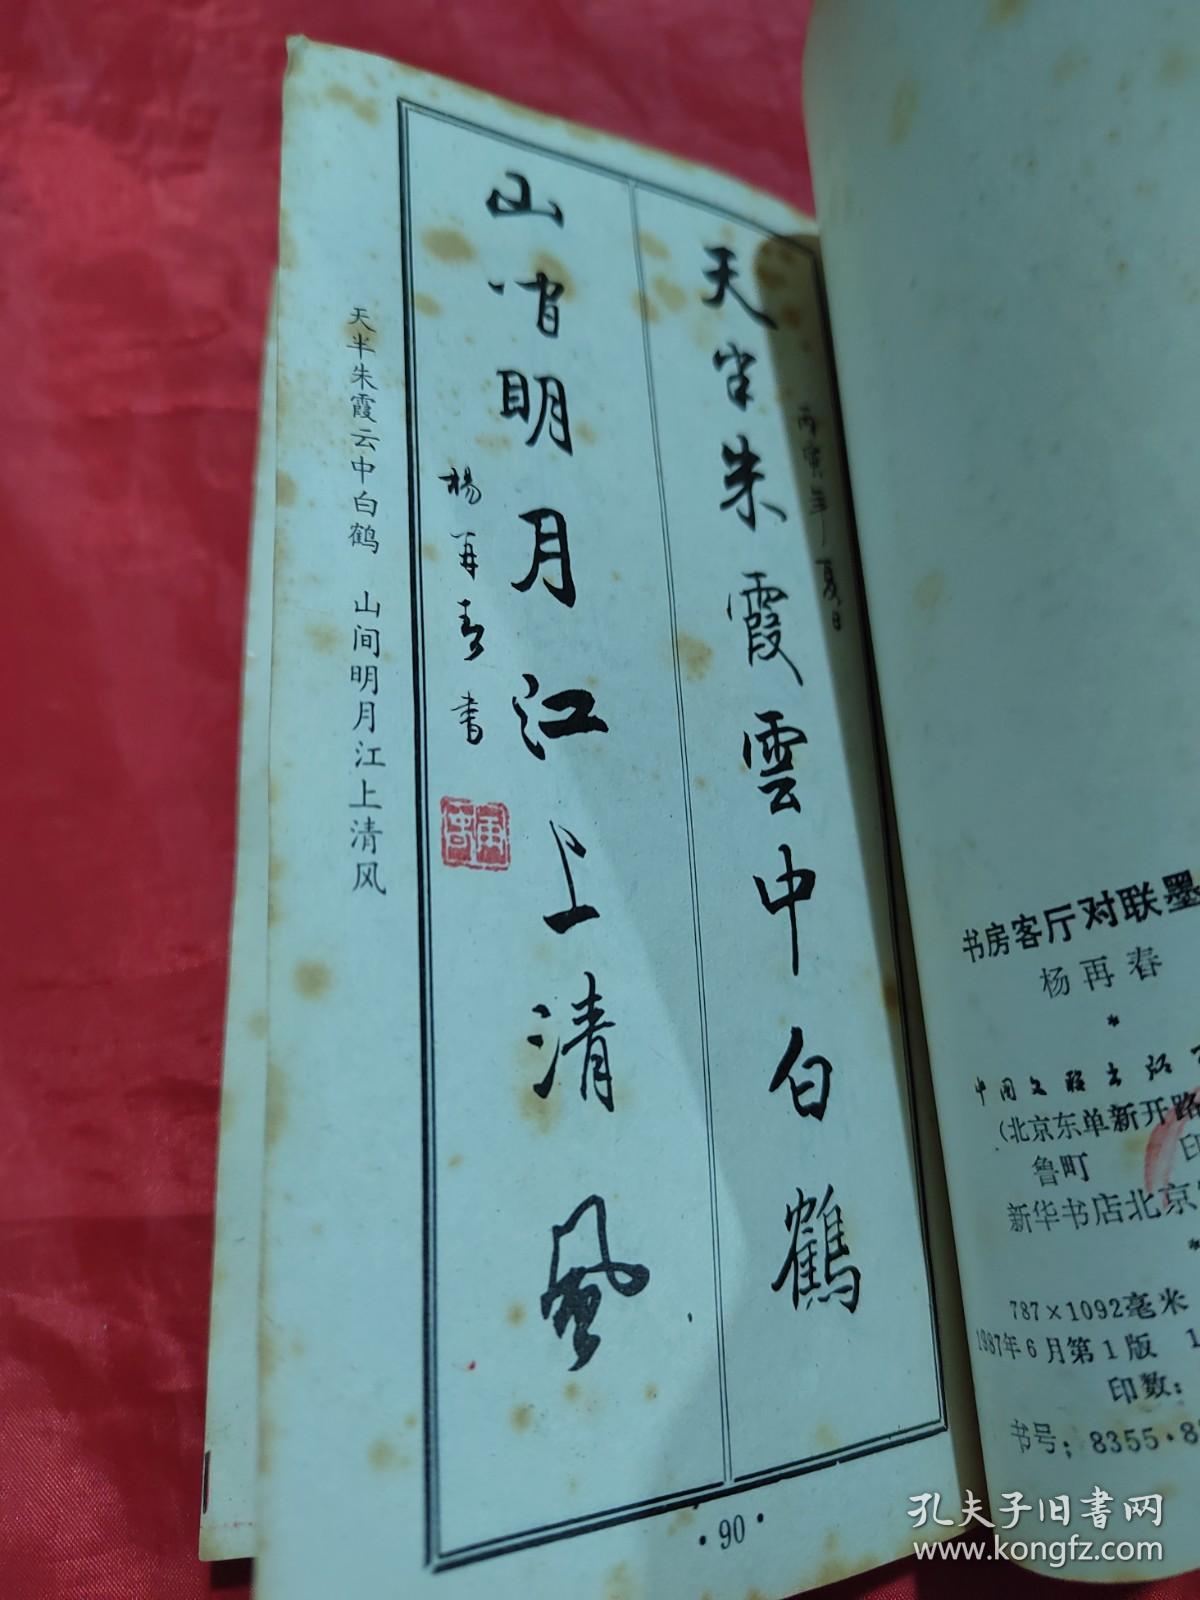 天半朱霞雲中白鶴
丙寅年夏日
山间明月江上清風
楊再春書
天半朱霞云中白鹤　山间明月江上清风
·90·
书房客厅对联墨
杨再春
*
中国文联出
(北京东单新开路
鲁町　印
新华书店北京
*
787×1092毫米
1987年6月第1版 1
印数:
书号: 8355·8
孔夫子旧书网
www.kongfz.com